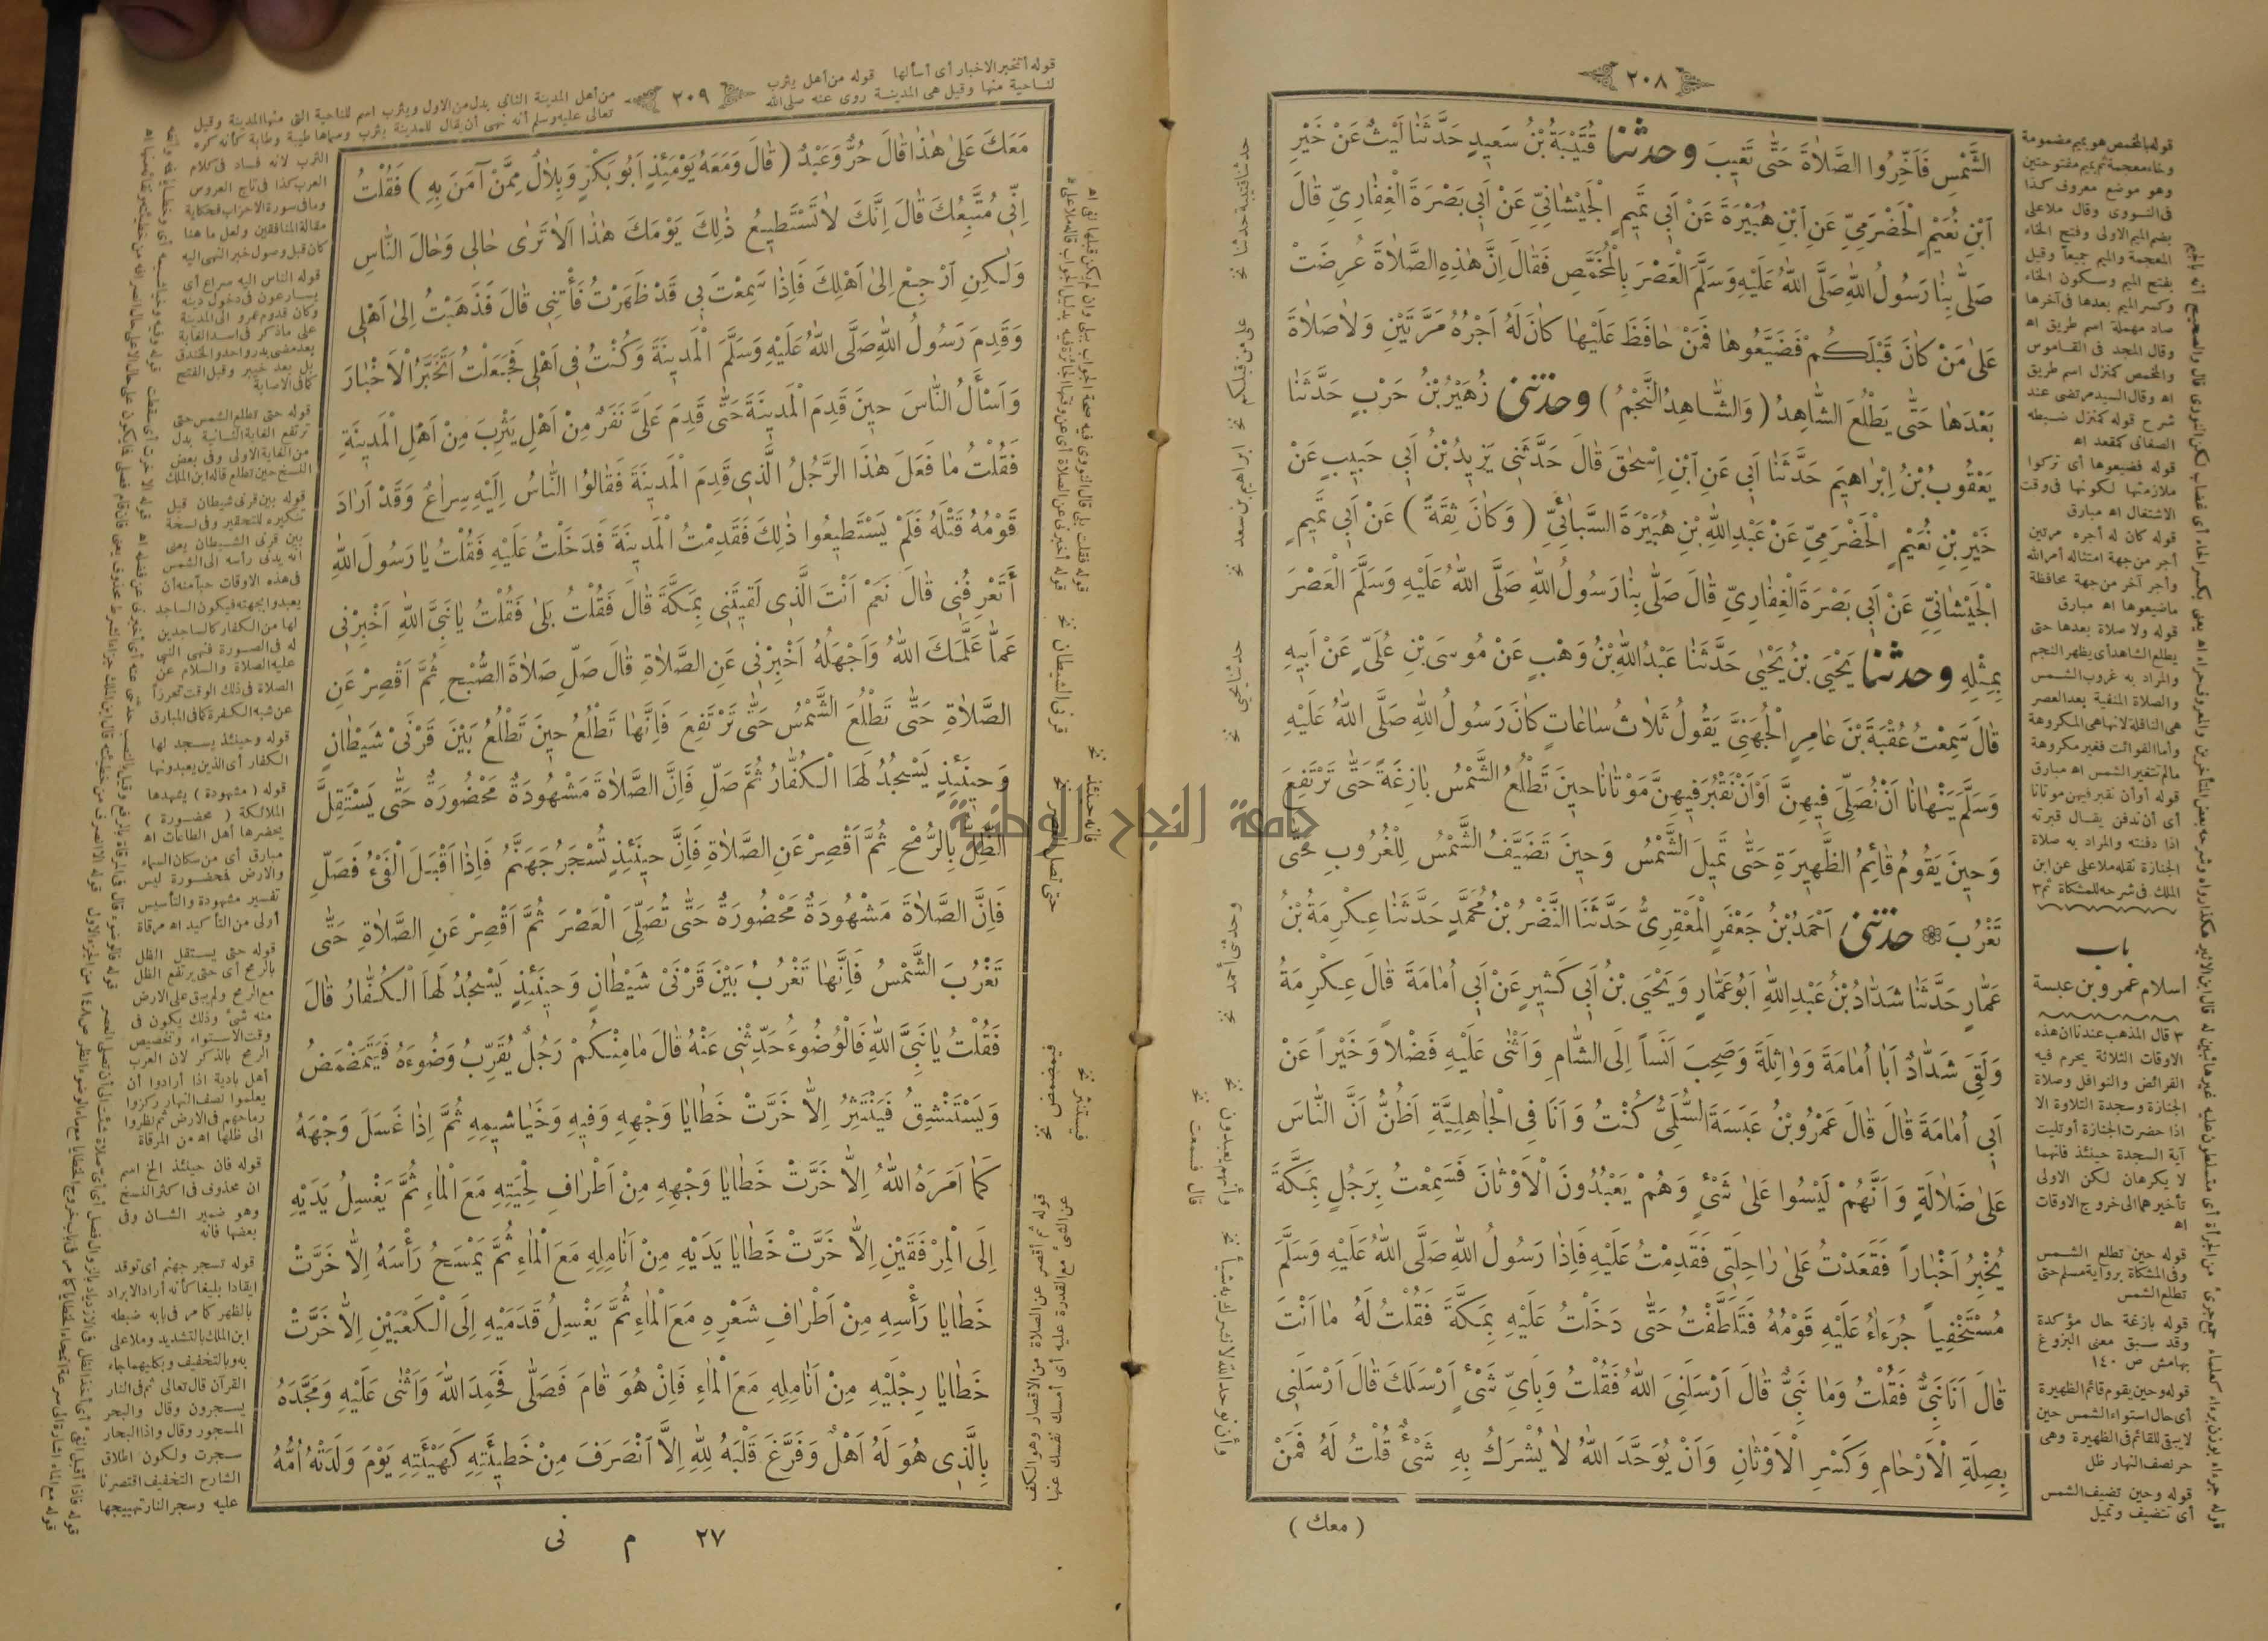 ٢٠٨
الشَّمْسِ فَاَخِّرُوا الصَّلَاةَ حَتّٰى تَغِيبَ وحدثنا قُتَيْبَةُ بْنُ سَعِيدٍ حَدَّثَنَا لَيْثٌ عَنْ خَيْرِ
ابْنِ نُعَيْمٍ الْحَضْرَمِيِّ عَنِ ابْنِ هُبَيْرَةَ عَنْ اَبِي تَمِيمٍ الْجَيْشَانِيِّ عَنْ اَبِي بَصْرَةَ الْغِفَارِيِّ قَالَ
صَلّٰى بِنَا رَسُولُ اللهِ صَلَّى اللهُ عَلَيْهِ وَسَلَّمَ الْعَصْرَ بِالْمُخَمَّصِ فَقَالَ اِنَّ هٰذِهِ الصَّلَاةَ عُرِضَتْ
عَلٰى مَنْ كَانَ قَبْلَكُمْ فَضَيَّعُوهَا فَمَنْ حَافَظَ عَلَيْهَا كَانَ لَهُ اَجْرُهُ مَرَّتَيْنِ وَلَا صَلَاةَ
بَعْدَهَا حَتّٰى يَطْلُعَ الشَّاهِدُ ( وَالشَّاهِدُ النَّجْمُ ) وحدثنى زُهَيْرُ بْنُ حَرْبٍ حَدَّثَنَا
يَعْقُوبُ بْنُ اِبْرَاهِيمَ حَدَّثَنَا اَبِي عَنِ ابْنِ اِسْحٰقَ قَالَ حَدَّثَنِي يَزِيدُ بْنُ اَبِي حَبِيبٍ عَنْ
خَيْرِ بْنِ نُعَيْمٍ الْحَضْرَمِيِّ عَنْ عَبْدِ اللهِ بْنِ هُبَيْرَةَ السَّبَائِيِّ ( وَكَانَ ثِقَةً ) عَنْ اَبِي تَمِيمٍ
الْجَيْشَانِيِّ عَنْ اَبِي بَصْرَةَ الْغِفَارِيِّ قَالَ صَلّٰى بِنَا رَسُولُ اللهِ صَلَّى اللهُ عَلَيْهِ وَسَلَّمَ الْعَصْرَ
بِمِثْلِهِ وحدثنا يَحْيَى بْنُ يَحْيٰى حَدَّثَنَا عَبْدُ اللهِ بْنُ وَهْبٍ عَنْ مُوسَى بْنِ عُلَيٍّ عَنْ اَبِيهِ
قَالَ سَمِعْتُ عُقْبَةَ بْنَ عَامِرٍ الْجُهَنِيَّ يَقُولُ ثَلَاثُ سَاعَاتٍ كَانَ رَسُولُ اللهِ صَلَّى اللهُ عَلَيْهِ
وَسَلَّمَ يَنْهَانَا اَنْ نُصَلِّيَ فِيهِنَّ اَوْ اَنْ نَقْبُرَ فِيهِنَّ مَوْتَانَا حِينَ تَطْلُعُ الشَّمْسُ بَازِغَةً حَتّٰى تَرْتَفِعَ
وَحِينَ يَقُومُ قَائِمُ الظَّهِيرَةِ حَتّٰى تَمِيلَ الشَّمْسُ وَحِينَ تَضَيَّفُ الشَّمْسُ لِلْغُرُوبِ حَتّٰى
تَغْرُبَ حدثنى اَحْمَدُ بْنُ جَعْفَرٍ الْمَعْقِرِيُّ حَدَّثَنَا النَّضْرُ بْنُ مُحَمَّدٍ حَدَّثَنَا عِكْرِمَةُ بْنُ
عَمَّارٍ حَدَّثَنَا شَدَّادُ بْنُ عَبْدِ اللهِ اَبُو عَمَّارٍ وَيَحْيَى بْنُ اَبِي كَثِيرٍ عَنْ اَبِي اُمَامَةَ قَالَ عِكْرِمَةُ
وَلَقِيَ شَدَّادٌ اَبَا اُمَامَةَ وَوَاثِلَةَ وَصَحِبَ اَنَساً اِلَى الشَّامِ وَاَثْنٰى عَلَيْهِ فَضْلاً وَخَيْراً عَنْ
اَبِي اُمَامَةَ قَالَ قَالَ عَمْرُو بْنُ عَبَسَةَ السُّلَمِيُّ كُنْتُ وَاَنَا فِي الْجَاهِلِيَّةِ اَظُنُّ اَنَّ النَّاسَ
عَلٰى ضَلَالَةٍ وَاَنَّهُمْ لَيْسُوا عَلٰى شَيْءٍ وَهُمْ يَعْبُدُونَ الْاَوْثَانَ فَسَمِعْتُ بِرَجُلٍ بِمَكَّةَ
يُخْبِرُ اَخْبَاراً فَقَعَدْتُ عَلٰى رَاحِلَتِي فَقَدِمْتُ عَلَيْهِ فَاِذَا رَسُولُ اللهِ صَلَّى اللهُ عَلَيْهِ وَسَلَّمَ
مُسْتَخْفِياً جُرَءَاءُ عَلَيْهِ قَوْمُهُ فَتَلَطَّفْتُ حَتّٰى دَخَلْتُ عَلَيْهِ بِمَكَّةَ فَقُلْتُ لَهُ مَا اَنْتَ
قَالَ اَنَا نَبِيٌّ فَقُلْتُ وَمَا نَبِيٌّ قَالَ اَرْسَلَنِيَ اللهُ فَقُلْتُ وَبِاَيِّ شَيْءٍ اَرْسَلَكَ قَالَ اَرْسَلَنِي
بِصِلَةِ الْاَرْحَامِ وَكَسْرِ الْاَوْثَانِ وَاَنْ يُوَحَّدَ اللهُ لَا يُشْرَكُ بِهِ شَيْءٌ قُلْتُ لَهُ فَمَنْ
( معك )
قوله بالمخمص هو بميم مضمومة
وخاء معجمة ثم ميم مفتوحتين
وهو موضع معروف كذا
فى النووى وقال ملا على
بضم الميم الاولى وفتح الخاء
المعجمة والميم جميعاً وقيل
بفتح الميم وسكون الخاء
وكسر الميم بعدها فى آخرها
صاد مهملة اسم طريق اه
وقال المجد فى القاموس
والمخمص كمنزل اسم طريق
اه وقال السيد مرتضى عند
شرح قوله كمنزل ضبطه
الصغانى كمقعد اه
قوله فضيعوها أى تركوا
ملازمتها لكونها فى وقت
الاشتغال اه مبارق
قوله كان له أجره مرتين
أجر من جهة امتثاله أمر الله
وأجر آخر من جهة محافظة
ماضيعوها اه مبارق
قوله ولا صلاة بعدها حتى
يطلع الشاهد أى يظهر النجم
والمراد به غروب الشمس
والصلاة المنفية بعد العصر
هى النافلة لانها هى المكروهة
وأما الفوائت فغير مكروهة
مالم تتغير الشمس اه مبارق
قوله أو أن نقبر فيهن موتانا
أى أن ندفن يقال قبرته
اذا دفنته والمراد به صلاة
الجنازة نقله ملا على عن ابن
الملك فى شرحه للمشكاة ثم ٣
باب
اسلام عمرو بن عبسة
٣ قال المذهب عندنا ان هذه
الاوقات الثلاثة يحرم فيه
الفرائض والنوافل وصلاة
الجنازة وسجدة التلاوة الا
اذا حضرت الجنازة أو تليت
آية السجدة حينئذ فانهما
لا يكرهان لكن الاولى
تأخيرهما الى خروج الاوقات
اه
قوله حين تطلع الشمس
وفى المشكاة برواية مسلم حتى
تطلع الشمس
قوله بازغة حال مؤكدة
وقد سبق معنى البزوغ
بهامش ص ١٤٠
قوله وحين يقوم قائم الظهيرة
أى حال استواء الشمس حين
لا يبقى للقائم فى الظهيرة وهى
حر نصف النهار ظل
قوله وحين تضيف الشمس
أى تتضيف وتميل
حدثنا قتيبة حدثنا نخ
على من قبلكم نخ
ابراهيم بن سعد نخ
حدثنا يحيى نخ
وحدثنى أحمد نخ
وأنهم يعبدون نخ
قال فسمعت نخ
وأن نوحد الله لا نشرك به شيأ نخ
٢٠٩
قوله أتخبر الاخبار أى أسألها قوله من أهل يثرب
لناحية منها وقيل هى المدينة روى عنه صلى الله
من أهل المدينة الثانى بدل من الاول ويثرب اسم للناحية التى منها المدينة وقيل
تعالى عليه وسلم أنه نهى أن يقال للمدينة يثرب وسماها طيبة وطابة كأنه كره
مَعَكَ عَلٰى هٰذَا قَالَ حُرٌّ وَعَبْدٌ ( قَالَ وَمَعَهُ يَوْمَئِذٍ اَبُو بَكْرٍ وَبِلَالٌ مِمَّنْ آمَنَ بِهِ ) فَقُلْتُ
اِنِّي مُتَّبِعُكَ قَالَ اِنَّكَ لَا تَسْتَطِيعُ ذٰلِكَ يَوْمَكَ هٰذَا اَلَا تَرٰى حَالِي وَحَالَ النَّاسِ
وَلٰكِنِ ارْجِعْ اِلٰى اَهْلِكَ فَاِذَا سَمِعْتَ بِي قَدْ ظَهَرْتُ فَأْتِنِي قَالَ فَذَهَبْتُ اِلٰى اَهْلِي
وَقَدِمَ رَسُولُ اللهِ صَلَّى اللهُ عَلَيْهِ وَسَلَّمَ الْمَدِينَةَ وَكُنْتُ فِي اَهْلِي فَجَعَلْتُ اَتَخَبَّرُ الْاَخْبَارَ
وَاَسْأَلُ النَّاسَ حِينَ قَدِمَ الْمَدِينَةَ حَتّٰى قَدِمَ عَلَيَّ نَفَرٌ مِنْ اَهْلِ يَثْرِبَ مِنْ اَهْلِ الْمَدِينَةِ
فَقُلْتُ مَا فَعَلَ هٰذَا الرَّجُلُ الَّذِي قَدِمَ الْمَدِينَةَ فَقَالُوا النَّاسُ اِلَيْهِ سِرَاعٌ وَقَدْ اَرَادَ
قَوْمُهُ قَتْلَهُ فَلَمْ يَسْتَطِيعُوا ذٰلِكَ فَقَدِمْتُ الْمَدِينَةَ فَدَخَلْتُ عَلَيْهِ فَقُلْتُ يَا رَسُولَ اللهِ
أَتَعْرِفُنِي قَالَ نَعَمْ اَنْتَ الَّذِي لَقِيتَنِي بِمَكَّةَ قَالَ فَقُلْتُ بَلٰى فَقُلْتُ يَا نَبِيَّ اللهِ اَخْبِرْنِي
عَمَّا عَلَّمَكَ اللهُ وَاَجْهَلُهُ اَخْبِرْنِي عَنِ الصَّلَاةِ قَالَ صَلِّ صَلَاةَ الصُّبْحِ ثُمَّ اَقْصِرْ عَنِ
الصَّلَاةِ حَتّٰى تَطْلُعَ الشَّمْسُ حَتّٰى تَرْتَفِعَ فَاِنَّهَا تَطْلُعُ حِينَ تَطْلُعُ بَيْنَ قَرْنَيْ شَيْطَانٍ
وَحِينَئِذٍ يَسْجُدُ لَهَا الْكُفَّارُ ثُمَّ صَلِّ فَاِنَّ الصَّلَاةَ مَشْهُودَةٌ مَحْضُورَةٌ حَتّٰى يَسْتَقِلَّ
الظِّلُّ بِالرُّمْحِ ثُمَّ اَقْصِرْ عَنِ الصَّلَاةِ فَاِنَّ حِينَئِذٍ تُسْجَرُ جَهَنَّمُ فَاِذَا اَقْبَلَ الْفَيْءُ فَصَلِّ
فَاِنَّ الصَّلَاةَ مَشْهُودَةٌ مَحْضُورَةٌ حَتّٰى تُصَلِّيَ الْعَصْرَ ثُمَّ اَقْصِرْ عَنِ الصَّلَاةِ حَتّٰى
تَغْرُبَ الشَّمْسُ فَاِنَّهَا تَغْرُبُ بَيْنَ قَرْنَيْ شَيْطَانٍ وَحِينَئِذٍ يَسْجُدُ لَهَا الْكُفَّارُ قَالَ
فَقُلْتُ يَا نَبِيَّ اللهِ فَالْوُضُوءُ حَدِّثْنِي عَنْهُ قَالَ مَا مِنْكُمْ رَجُلٌ يُقَرِّبُ وَضُوءَهُ فَيَتَمَضْمَضُ
وَيَسْتَنْشِقُ فَيَنْتَثِرُ اِلَّا خَرَّتْ خَطَايَا وَجْهِهِ وَفِيهِ وَخَيَاشِيمِهِ ثُمَّ اِذَا غَسَلَ وَجْهَهُ
كَمَا اَمَرَهُ اللهُ اِلَّا خَرَّتْ خَطَايَا وَجْهِهِ مِنْ اَطْرَافِ لِحْيَتِهِ مَعَ الْمَاءِ ثُمَّ يَغْسِلُ يَدَيْهِ
اِلَى الْمِرْفَقَيْنِ اِلَّا خَرَّتْ خَطَايَا يَدَيْهِ مِنْ اَنَامِلِهِ مَعَ الْمَاءِ ثُمَّ يَمْسَحُ رَأْسَهُ اِلَّا خَرَّتْ
خَطَايَا رَأْسِهِ مِنْ اَطْرَافِ شَعْرِهِ مَعَ الْمَاءِ ثُمَّ يَغْسِلُ قَدَمَيْهِ اِلَى الْكَعْبَيْنِ اِلَّا خَرَّتْ
خَطَايَا رِجْلَيْهِ مِنْ اَنَامِلِهِ مَعَ الْمَاءِ فَاِنْ هُوَ قَامَ فَصَلّٰى فَحَمِدَ اللهَ وَاَثْنٰى عَلَيْهِ وَمَجَّدَهُ
بِالَّذِي هُوَ لَهُ اَهْلٌ وَفَرَّغَ قَلْبَهُ لِلّٰهِ اِلَّا انْصَرَفَ مِنْ خَطِيئَتِهِ كَهَيْئَتِهِ يَوْمَ وَلَدَتْهُ اُمُّهُ
٢٧ م نى
الثرب لانه فساد فى كلام
العرب كذا فى تاج العروس
وما فى سورة الاحزاب فحكاية
مقالة المنافقين ولعل ما هنا
كان قبل وصول خبر النهى اليه
قوله الناس اليه سراع أى
يسارعون فى دخول دينه
وكان قدوم عمرو الى المدينة
على ماذكر فى اسد الغابة
بعد مضى بدر واحد والخندق
بل بعد خيبر وقبل الفتح
كما فى الاصابة
قوله حتى تطلع الشمس حتى
ترتفع الغاية الثانية بدل
من الغاية الاولى وفى بعض
النسخ حين تطلع قاله ابن الملك
قوله بين قرنى شيطان قيل
تنكيره للتحقير وفى نسخة
بين قرنى الشيطان يعنى
أنه يدنى رأسه الى الشمس
فى هذه الاوقات حبا منه أن
يعبدوا بجهته فيكون الساجد
لها من الكفار كالساجدين
له فى الصورة فنهى النبى
عليه الصلاة والسلام عن
الصلاة فى ذلك الوقت تحرزاً
عن شبه الكفرة كما فى المبارق
قوله وحينئذ يسجد لها
الكفار أى الذين يعبدونها
قوله ( مشهودة ) يشهدها
الملائكة ( محضورة )
يحضرها أهل الطاعات اه
مبارق أى من سكان السماء
والارض فمحضورة ليس
تفسير مشهودة والتأسيس
أولى من التأكيد اه مرقاة
قوله حتى يستقل الظل
بالرمح أى حتى يرتفع الظل
مع الرمح ولم يبق على الارض
منه شئ وذلك يكون فى
وقت الاستواء وتخصيص
الرمح بالذكر لان العرب
أهل بادية اذا أرادوا أن
يعلموا نصف النهار ركزوا
رماحهم فى الارض ثم نظروا
الى ظلها اه من المرقاة
قوله فان حينئذ الخ اسم
ان محذوف فى اكثر النسخ
وهو ضمير الشان وفى
بعضها فانه
قوله تسجر جهنم أى توقد
ايقادا بليغا كأنه أراد الابراد
بالظهر كما مر فى بابه ضبطه
ابن الملك بالتشديد وملا على
به وبالتخفيف وبكليهما جاء
القرآن قال تعالى ثم فى النار
يسجرون وقال والبحر
المسجور وقال واذا البحار
سجرت ولكون اطلاق
الشارح التخفيف اقتصرنا
عليه وسجر النار تهييجها
قرنى الشيطان نخ
فانه حينئذ نخ
حتى تصلى العصر نخ
فيمضمض نخ
فيستنثر نخ
قوله ثم أقصر عن الصلاة من الاقصار وهو الكف
عن الشئ مع القدرة عليه أى أمسك نفسك عنها
جامعة النجاح الوطنية